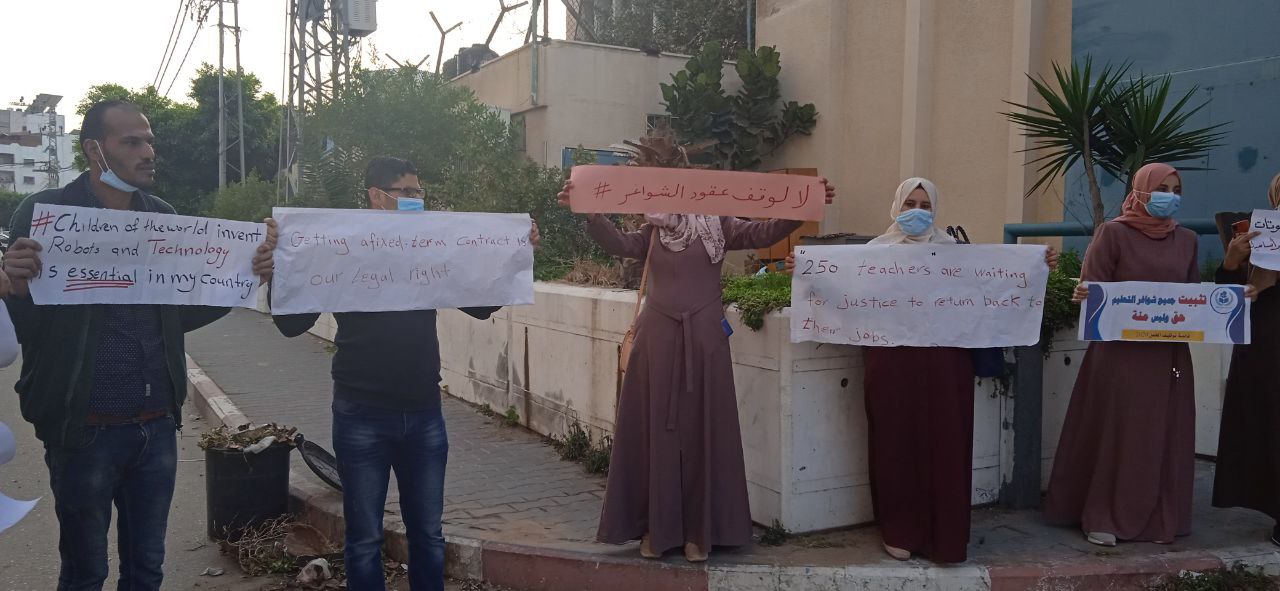 #Children of the world invent
Robots and Technology
is essential in my country
Getting afixed-term contract is
our legal right
لا لوقف عقود الشواغر #
"250 teachers" are waiting
for justice to return back to
their jobs.
تثبيت جميع شواغر التعليم
حق وليس منة